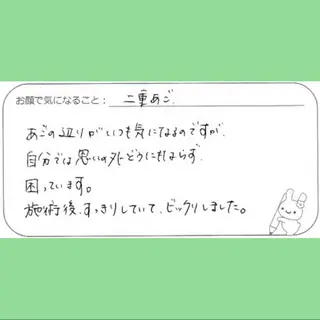 お顔で気になること： 二重あご
あごの辺りがいつも気になるのですが、
自分では思いの外どうにもならず、
困っています。
施術後、すっきりしていて、ビックリしました。